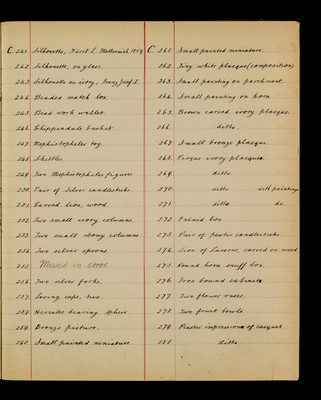 C. 241. Silhouette, Fürst L. Metternich 1859
242. Silhouette, on glass.
243. Silhouette on ivory, Franz Josef I.
244. Beaded match box.
245. Bead work wallet.
246. Chippendale basket
247. Mephistopheles toy.
248. Shuttles.
249. Two Mephistopheles figures
250. Pair of silver candlesticks
251. Carved lion, wood.
252. Two small ivory columns.
253. Two small ebony columns
254. Two silver spoons.
255. Missed in error.
256. Two silver forks.
257. Loving cups, two.
258. Hercules bearing sphere.
259. Bronze picture.
260. Small painted miniature.
C. 261. Small painted miniature.
262. Tiny white plaque (composition)
263. Small painting on parchment.
264. Small painting on horn.
265. Brown carved ivory plaque.
266. ditto.
267. Small bronze plaque
268. Pieces ivory plaques.
269. ditto
270. ditto with paintings
271. ditto do.
272. Inlaid box.
273. Pair of pewter candlesticks.
274. Lion of Lucerne, carved on wood
275. Round horn snuff box.
276. Iron bound cabinet.
277. Two flower vases.
278. Two fruit bowls.
279. Plaster impressions of casquet
280. ditto